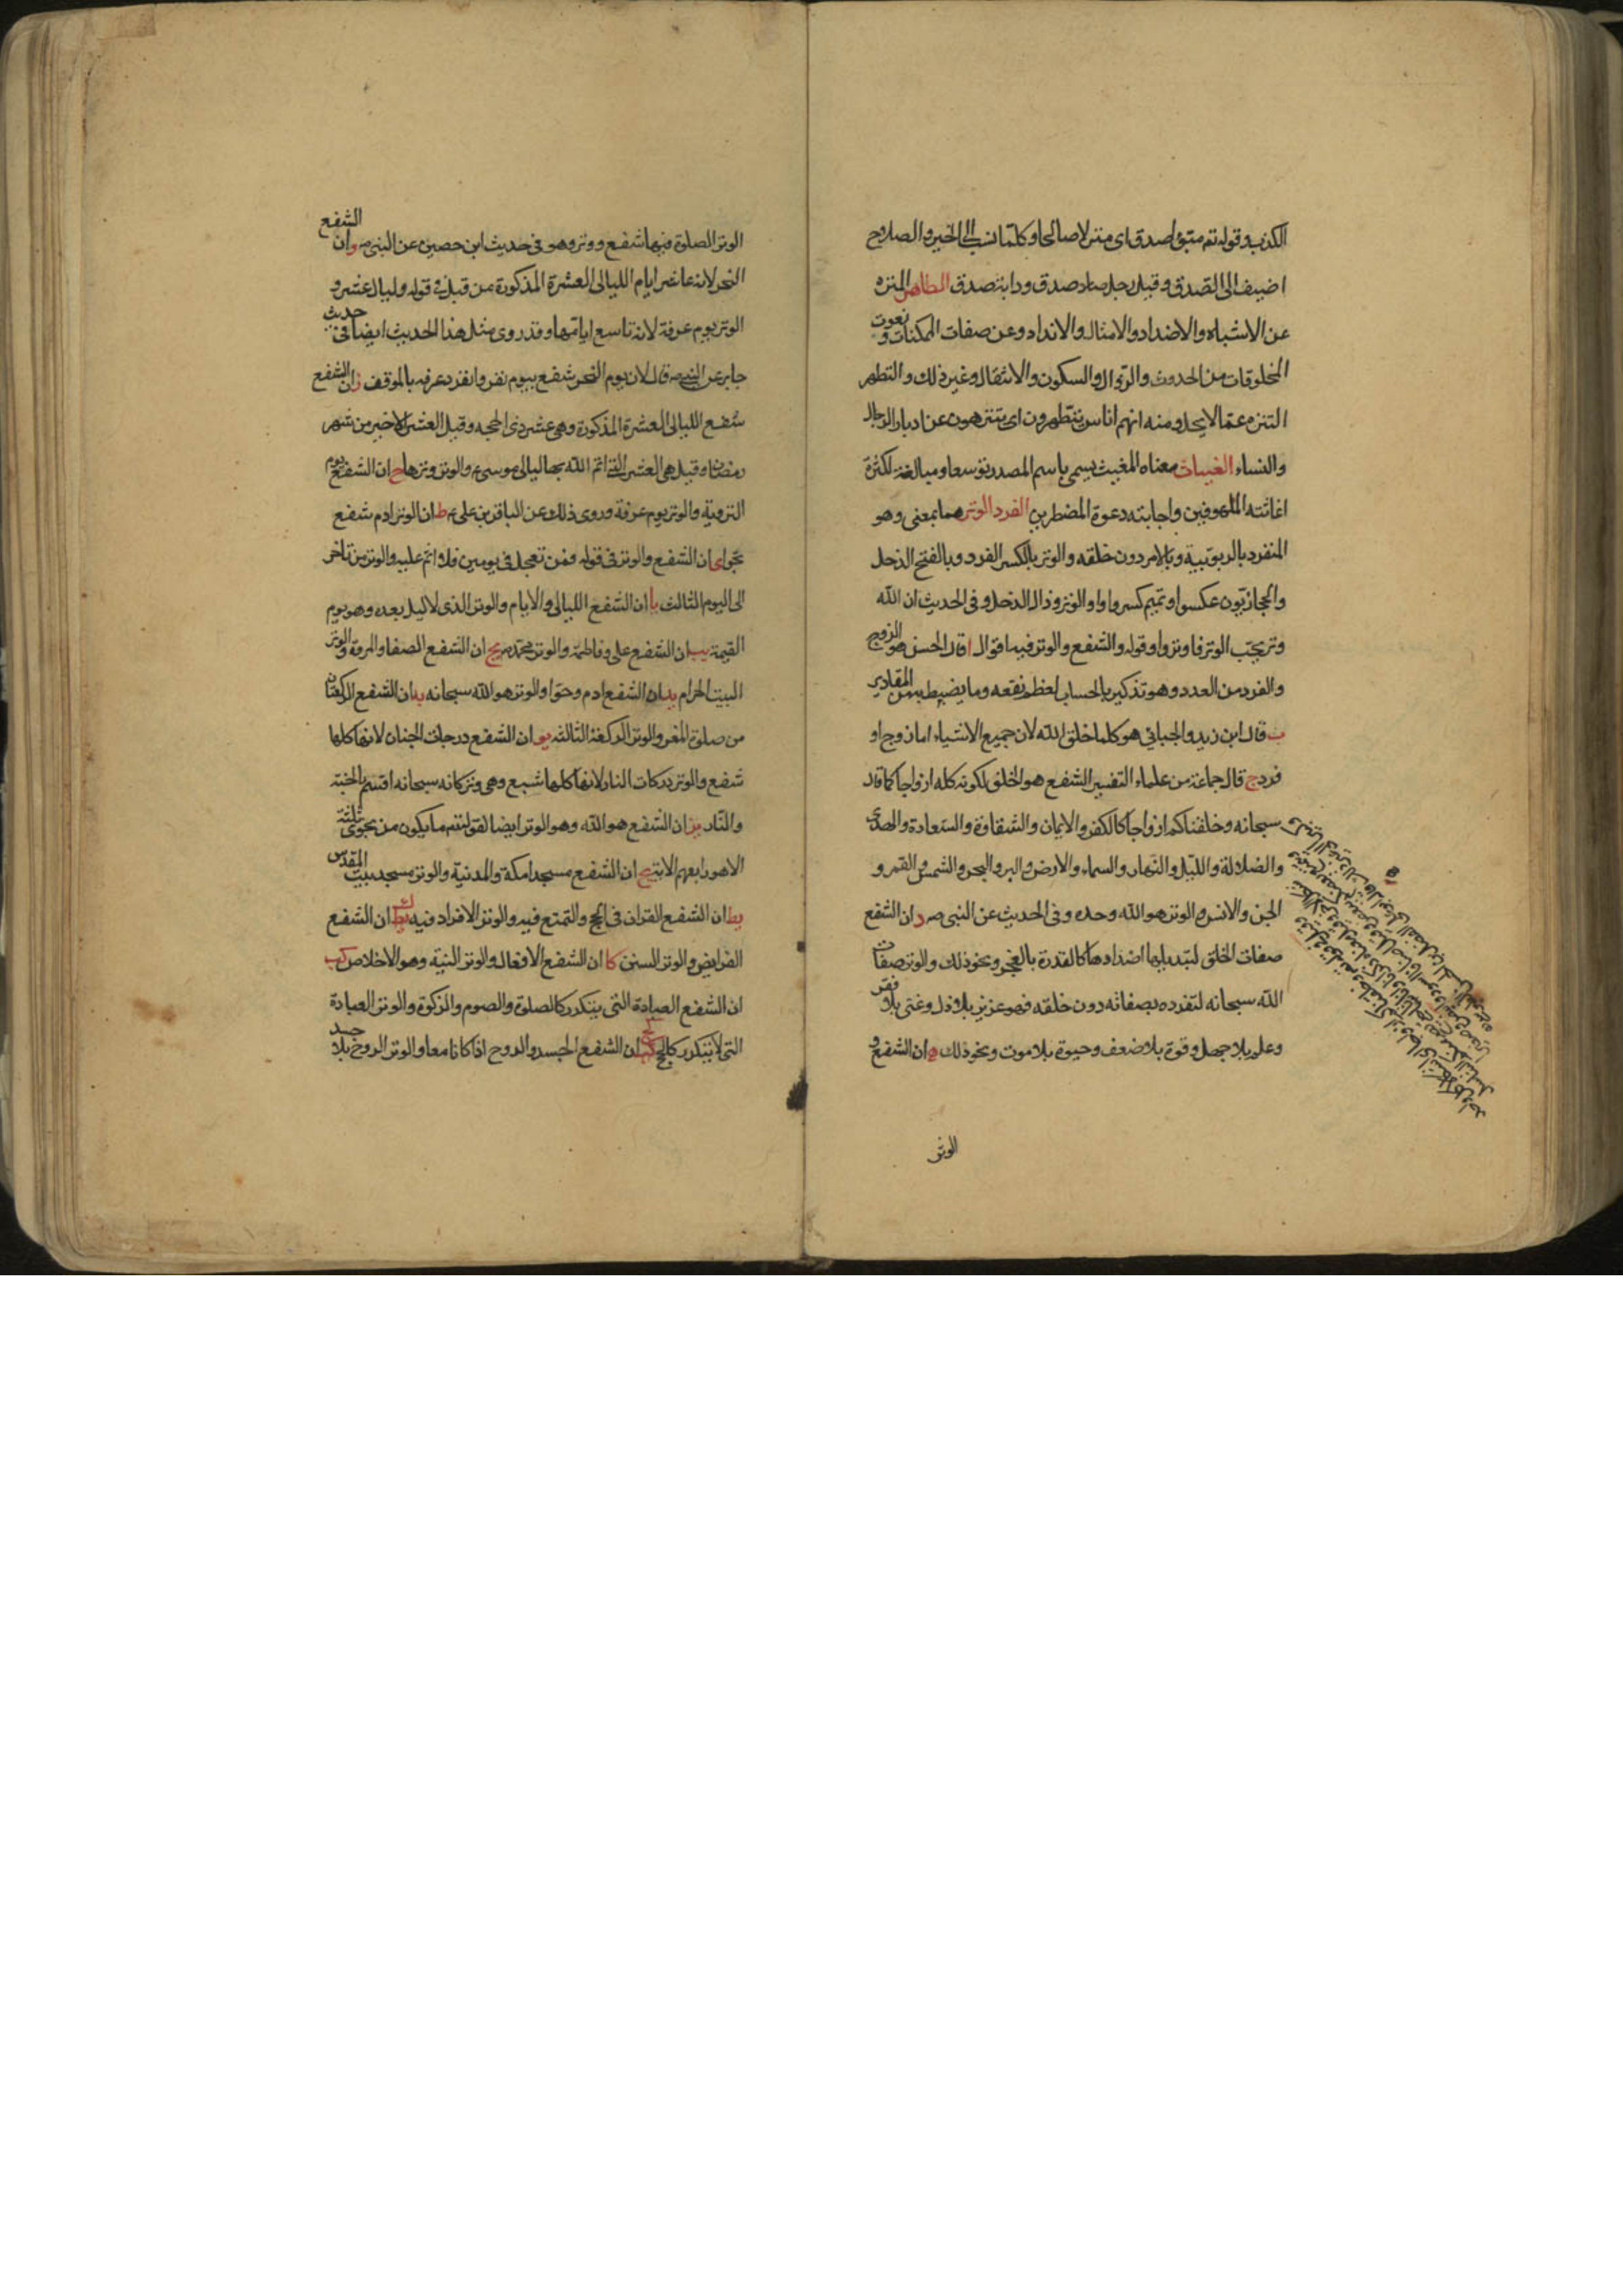 الكذب وقوله تم مبوّء صدق اى منزلا صالحا وكلّما نسب الى الخير والصلاح
اضيف الى الصّدق وقيل رجل صدق ودابة صدق الطاهر المنزه
عن الاشباه والاضداد والامثال والانداد وعن صفات الممكنات ونعوت
المخلوقات من الحدوث والزوال والسكون والانتقال وغير ذلك والتطهر
التنزه عمّا لا يحل ومنه انهم اناس يتطهرون اى يتنزهون عن ادبار الرجال
والنساء الغياث معناه المغيث سمى باسم المصدر توسعا ومبالغة لكثرة
اغاثته الملهوفين واجابته دعوة المضطرين الفرد الوتر هما بمعنى وهو
المنفرد بالربوبية وبالامر دون خلقه والوتر بالكسر الفرد وبالفتح الذحل
والحجازيّون عكسوا وتميم كسروا واو الوتر وذال الذحل وفى الحديث ان الله
وتر يحبّ الوتر فاوتروا وقوله والشفع والوتر فيه اقوال ا قال الحسن هو الزوج
والفرد من العدد وهو تذكير بالحساب لعظم نفعه وما يضبط به من المقادير
ب قال ابن زيد والجبائي هو كلما خلق الله لان جميع الاشياء اما زوج او
فرد ج قال جماعة من علماء التفسير الشفع هو الخلق لكونه كله ازواجا كما قال
سبحانه وخلقناكم ازواجا كالكفر والايمان والشقاوة والسّعادة والهدى
والضلالة والليل والنهار والسماء والارض والبر والبحر والشمس والقمر و
الجن والانس والوتر هو الله وحده وفى الحديث عن النبي ص د ان الشفع
صفات الخلق لتبديلها اضدادها كالقدرة بالعجز ونحو ذلك والوتر صفات
الله سبحانه لتفرده بصفاته دون خلقه فهو عزيز بلا ذل وغنى بلا فقر
وعلم بلا جهل وقوة بلا ضعف وحيوة بلا موت ونحو ذلك ه ان الشفع و
الوتر
الوتر الصلوة فيها شفع ووتر وهو فى حديث ابن حصين عن النبي ص و ان الشفع
النحر لانه عاشر ايام الليالى العشرة المذكورة من قبل فى قوله وليال عشر و
الوتر يوم عرفة لانه تاسع ايامها وقد روى مثل هذا الحديث ايضا فى حديث
جابر عن النبي ص قال لان يوم النحر شفع بيوم نفر وانفرد عرفه بالموقف ز ان الشفع
شفع الليالى العشرة المذكورة وهى عشر ذى الحجه وقيل العشر الاخير من شهر
رمضان وقيل هى العشر التى اتم الله بها ليالى موسى ع والوتر وترها ح ان الشفع يوم
التروية والوتر يوم عرفة وروى ذلك عن الباقر بن على ع ط ان الوتر ادم شفع
بحوا ى ان الشفع والوتر فى قوله فمن تعجل فى يومين فلا اثم عليه والوتر من تاخر
الى اليوم الثالث يا ان الشفع الليالى والايام والوتر الذى لا ليل بعده وهو يوم
القيمة يب ان الشفع على وفاطمة والوتر محمّد ص يج ان الشفع الصفا والمروة والوتر
البيت الحرام يد ان الشفع ادم وحوّا والوتر هو الله سبحانه يه ان الشفع الركعتان
من صلوة المغرب والوتر الركعة الثالثه يو ان الشفع درجات الجنان لانها كلها
شفع والوتر دركات النار لانها كلها سبع وهى وتر كانه سبحانه اقسم بالجنة
والنّار يز ان الشفع هو الله وهو الوتر ايضا لقوله تم ما يكون من نجوى ثلثة
الا هو رابعهم الاية يح ان الشفع مسجدا مكة والمدنية والوتر مسجد بيت المقدّس
يط ان الشفع القران فى الحج والتمتع فيه والوتر الافراد فيه ك ان الشفع
الفرايض والوتر السنن كا ان الشفع الافعال والوتر النية وهو الاخلاص كب
ان الشفع العبادة التى تتكرر كالصلوة والصوم والزكوة والوتر العبادة
التى لا تتكرر كالحج كج ان الشفع الجسد والروح اذا كانا معا والوتر الروح بلا جسد